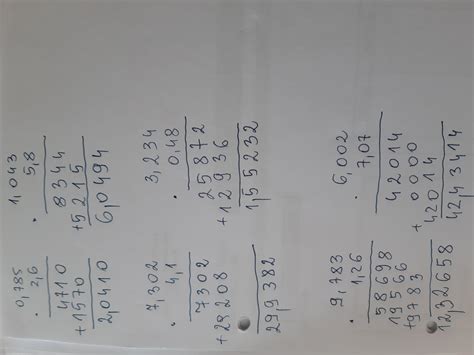 0,785
· 2,6
4710
+1570
2,0410
1,043
· 5,8
8344
+5215
6,0494
7,302
· 4,1
7302
+29208
29,9382
3,234
· 0,48
25872
+12936
1,55232
9,783
· 1,26
58698
19566
+9783
12,32658
6,002
· 7,07
42014
0000
+42014
42,43414